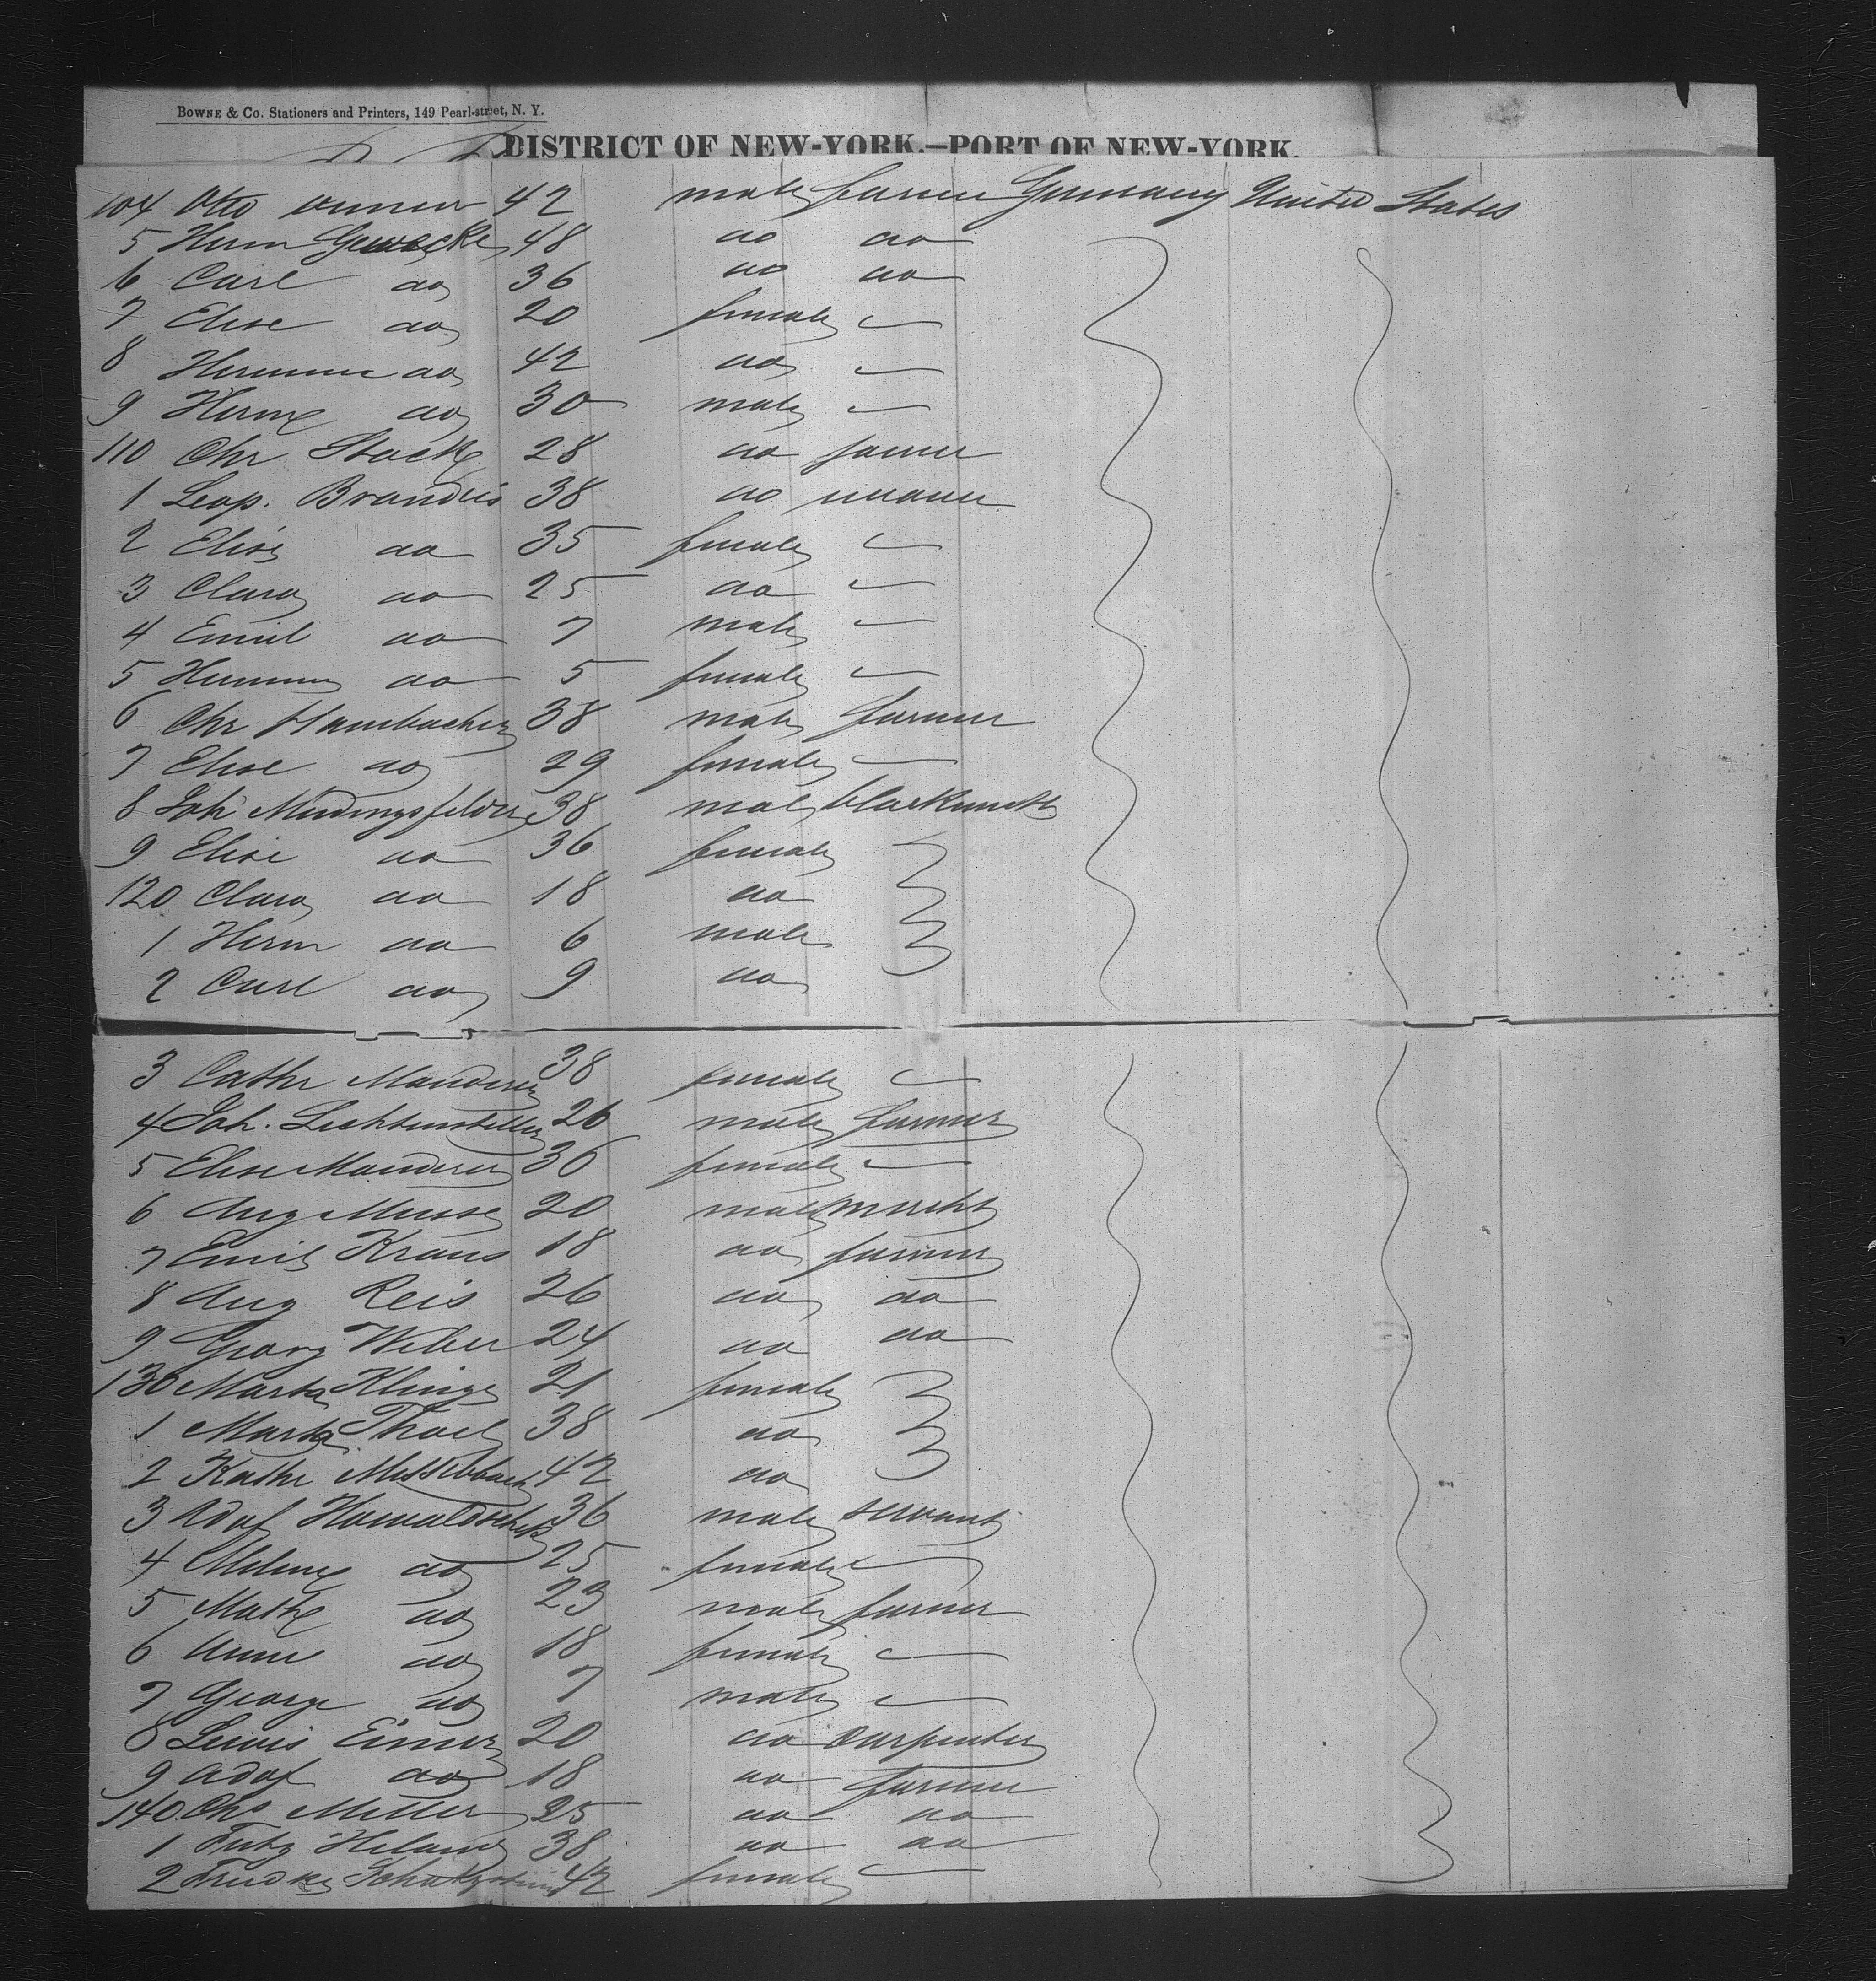 BOWNE & CO. Stationers and Printers, 149 Pearl-street, N. Y.
DISTRICT OF NEW-YORK.—PORT OF NEW-YORK.
104 Otto 42 male farmer Germany United States
5 Herm Gewecke 48 do do
6 Carl do 36 do do
7 Elise do 20 female
8 Hermine do 42 do
9 Herm do 30 male
110 Chr Stock 28 do farmer
1 Leop. Brandeis 38 do
2 Elise do 35 female
3 Clara do 25 do
4 Emil do 7 male
5 do 5 female
6 Chr Hambacher 38 male farmer
7 Elise do 29 female
8 Joh 38 male blacksmith
9 Elise do 36 female
120 Clara do 18 do
1 Herm do 6 male
2 Carl do 9 do
3 Cathr Manderer 38 female
4 Joh. 26 male farmer
5 Elise Manderer 36 female
6 Aug Musse 20 male mercht
7 Emil Kraus 18 do farmer
8 Aug Reis 26 do do
9 Georg Weber 24 do do
130 Martha Klinge 21 female
1 Martha 38 do
2 Kathr 42 do
3 Adof 36 male servant
4 do 25 female
5 Math do 23 male farmer
6 Anne do 18 female
7 George do 7 male
8 Lewis Eimer 20 do carpenter
9 Adof do 18 do farmer
140 Chs Miller 25 do do
1 Fritz 38 do do
2 42 female